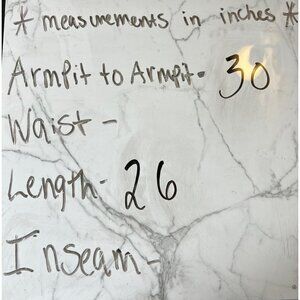 * measurements in inches *
Armpit to Armpit- 30
Waist -
Length- 26
Inseam -